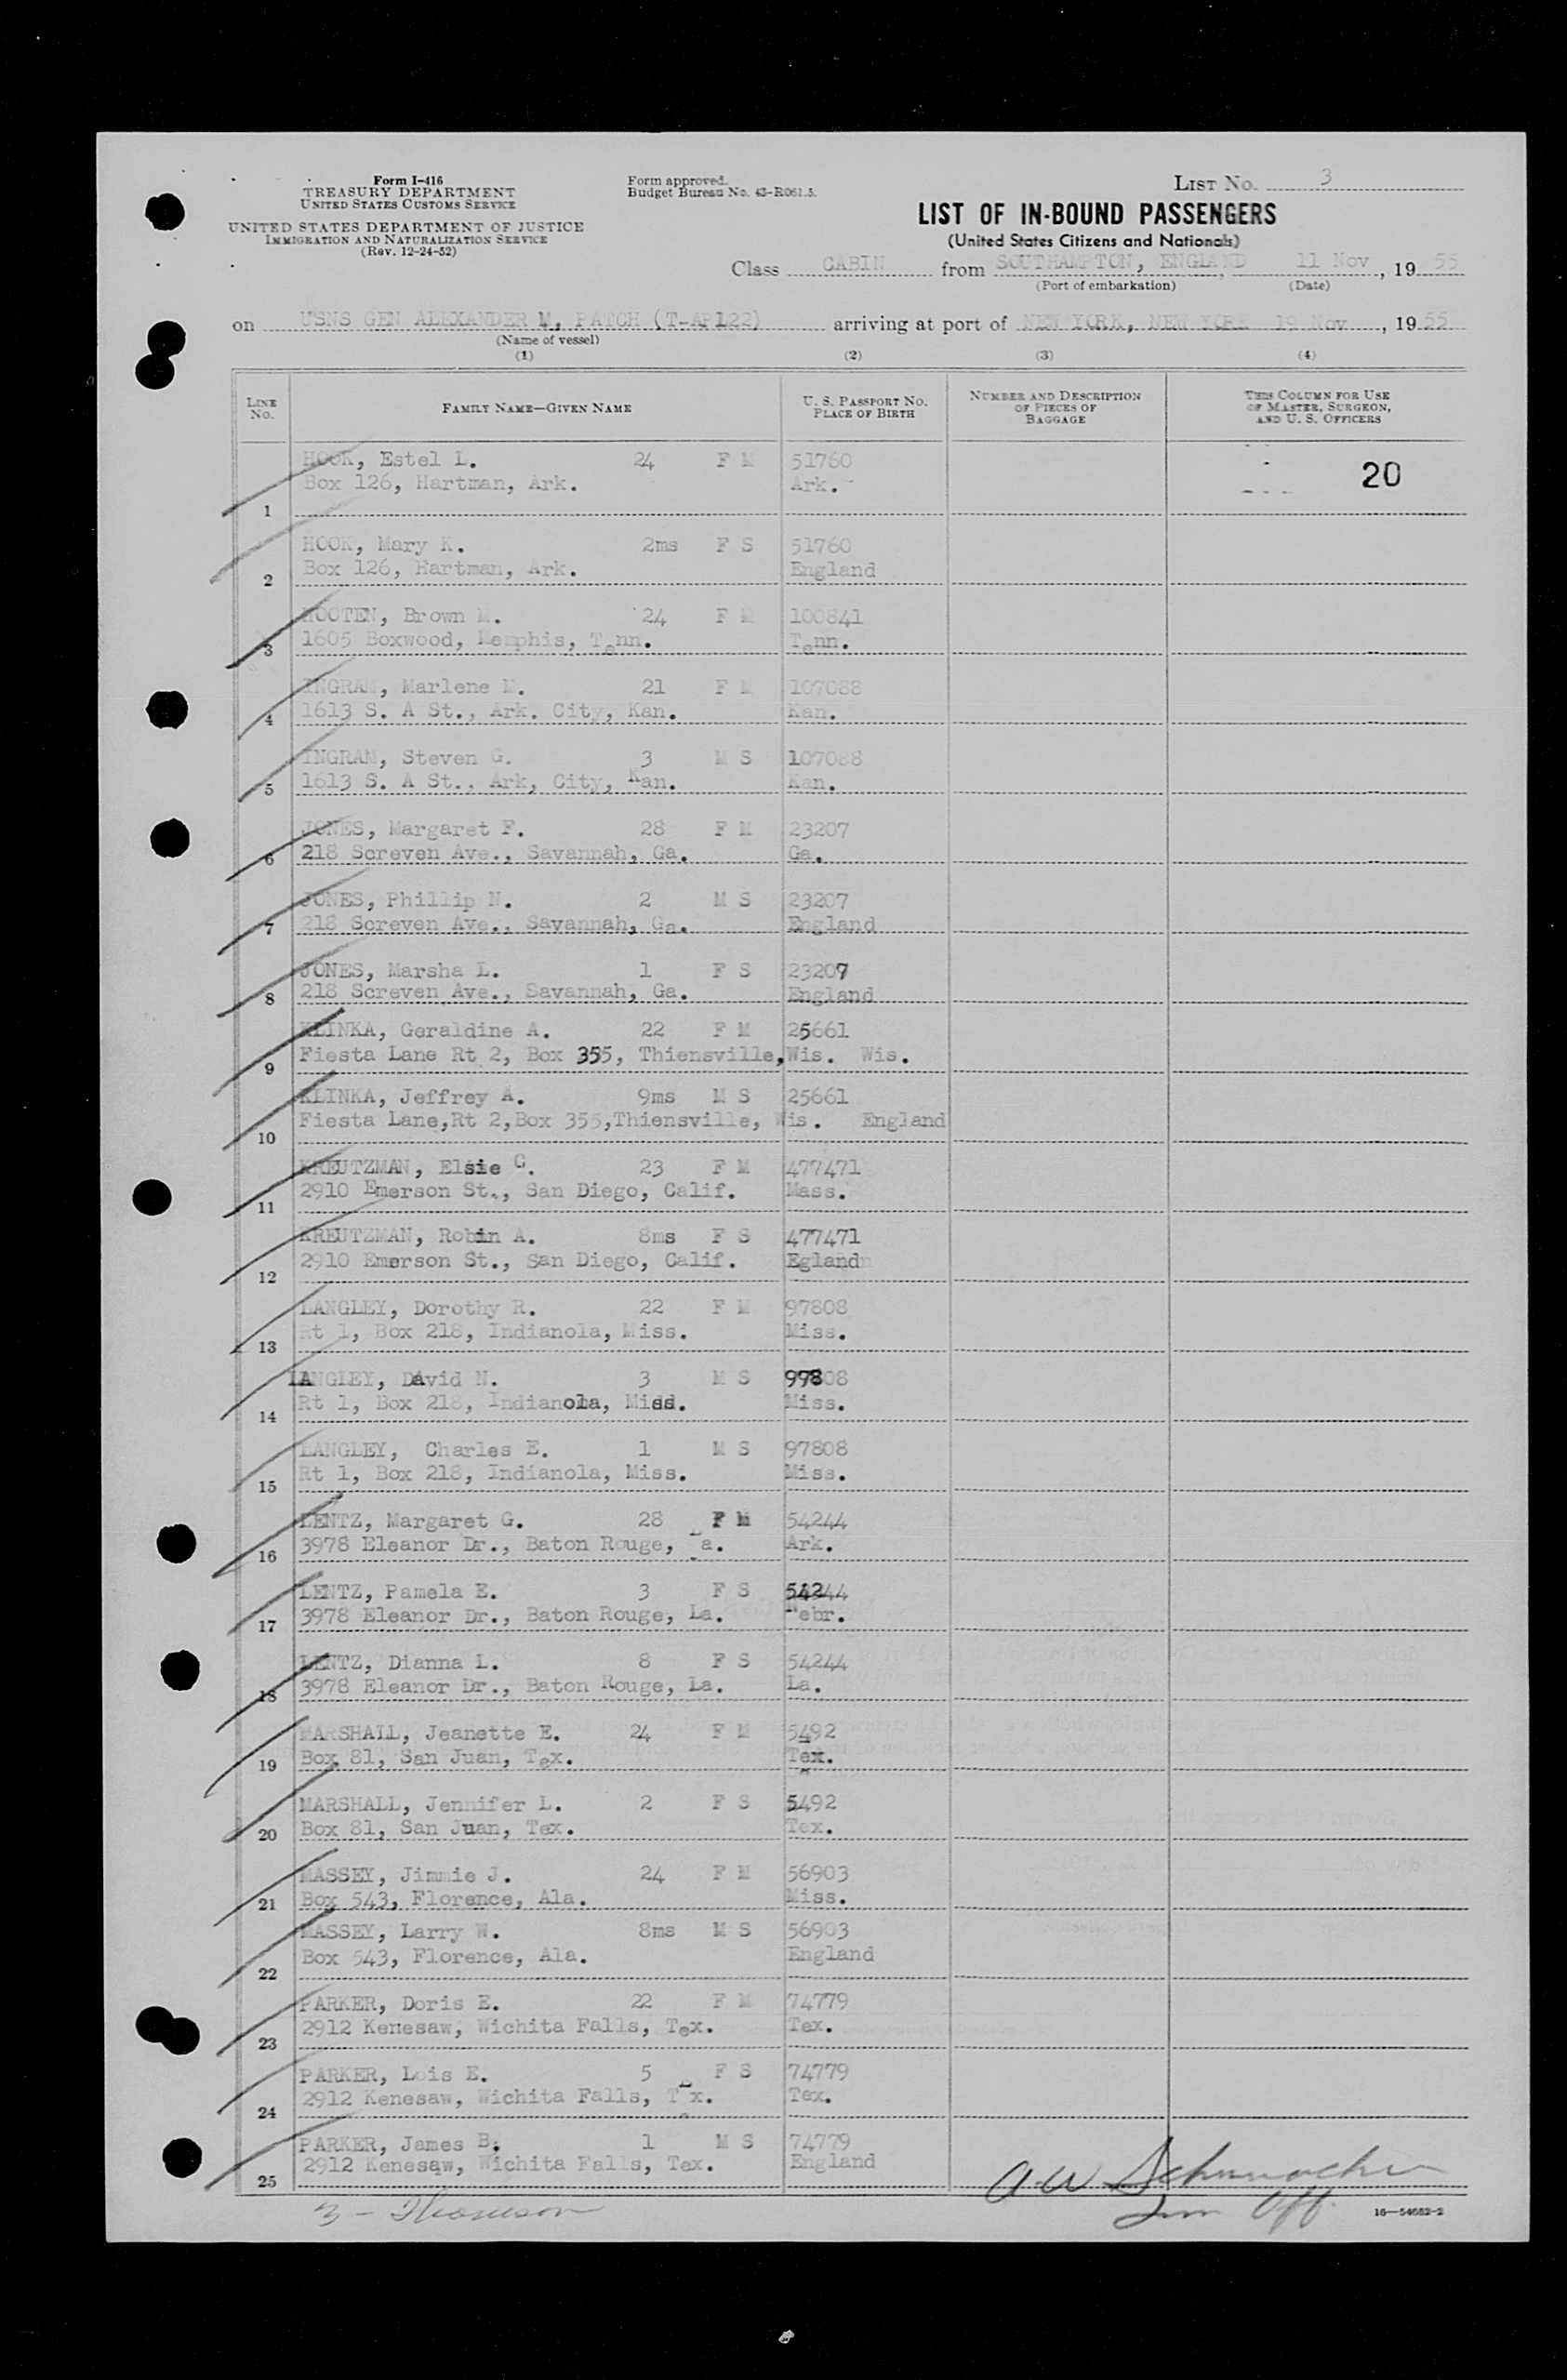 Form I-416
TREASURY DEPARTMENT
UNITED STATES CUSTOMS SERVICE
UNITED STATES DEPARTMENT OF JUSTICE
IMMIGRATION AND NATURALIZATION SERVICE
(Rev. 12-24-52)
Form approved.
Budget Bureau No. 43-R061.5.
LIST NO. 3
LIST OF IN-BOUND PASSENGERS
(United States Citizens and Nationals)
Class CABIN from SOUTHAMPTON, ENGLAND, 11 Nov, 1955
(Port of embarkation) (Date)
on USNS GEN ALEXANDER M. PATCH (T-AP122) arriving at port of NEW YORK, NEW YORK 19 Nov, 1955
(Name of vessel)
(1) (2) (3) (4)
LINE NO. FAMILY NAME—GIVEN NAME U. S. PASSPORT NO. PLACE OF BIRTH NUMBER AND DESCRIPTION OF PIECES OF BAGGAGE THIS COLUMN FOR USE OF MASTER, SURGEON, AND U. S. OFFICERS
HOOK, Estel L. 24 F M 51760 20
Box 126, Hartman, Ark. Ark.
1
HOOK, Mary K. 2ms F S 51760
Box 126, Hartman, Ark. England
2
HOOTEN, Brown M. 24 F M 100841
1605 Boxwood, Memphis, Tenn. Tenn.
3
INGRAM, Marlene M. 21 F M 107088
1613 S. A St., Ark. City, Kan. Kan.
4
INGRAM, Steven G. 3 M S 107088
1613 S. A St., Ark, City, Kan. Kan.
5
JONES, Margaret F. 28 F M 23207
218 Screven Ave., Savannah, Ga. Ga.
6
JONES, Phillip N. 2 M S 23207
218 Screven Ave., Savannah, Ga. England
7
JONES, Marsha L. 1 F S 23207
218 Screven Ave., Savannah, Ga. England
8
KLINKA, Geraldine A. 22 F M 25661
Fiesta Lane Rt 2, Box 355, Thiensville, Wis. Wis.
9
KLINKA, Jeffrey A. 9ms M S 25661
Fiesta Lane,Rt 2,Box 355,Thiensville, Wis. England
10
KREUTZMAN, Elsie C. 23 F M 477471
2910 Emerson St., San Diego, Calif. Mass.
11
KREUTZMAN, Robin A. 8ms F S 477471
2910 Emerson St., San Diego, Calif. Egland
12
LANGLEY, Dorothy R. 22 F M 97808
Rt 1, Box 218, Indianola, Miss. Miss.
13
LANGLEY, David N. 3 M S 99808
Rt 1, Box 218, Indianola, Miss. Miss.
14
LANGLEY, Charles E. 1 M S 97808
Rt 1, Box 218, Indianola, Miss. Miss.
15
LENTZ, Margaret G. 28 F M 54244
3978 Eleanor Dr., Baton Rouge, La. Ark.
16
LENTZ, Pamela E. 3 F S 54244
3978 Eleanor Dr., Baton Rouge, La. Nebr.
17
LENTZ, Dianna L. 8 F S 54244
3978 Eleanor Dr., Baton Rouge, La. La.
18
MARSHALL, Jeanette E. 24 F M 5492
Box 81, San Juan, Tex. Tex.
19
MARSHALL, Jennifer L. 2 F S 5492
Box 81, San Juan, Tex. Tex.
20
MASSEY, Jimmie J. 24 F M 56903
Box 543, Florence, Ala. Miss.
21
MASSEY, Larry W. 8ms M S 56903
Box 543, Florence, Ala. England
22
PARKER, Doris E. 22 F M 74779
2912 Kenesaw, Wichita Falls, Tex. Tex.
23
PARKER, Lois E. 5 F S 74779
2912 Kenesaw, Wichita Falls, Tex. Tex.
24
PARKER, James B. 1 M S 74779
2912 Kenesaw, Wichita Falls, Tex. England
25
A.W. Schumacher
3 - Thomson
Imm Off.
16—54682-2